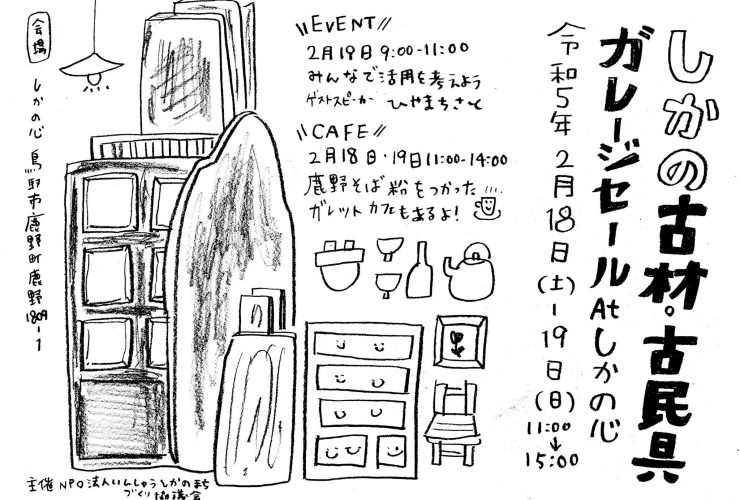 しかの古材。古民具
ガレージセール Atしかの心
令和5年 2月18日(土)-19日(日) 11:00→15:00
\\EVENT//
2月19日 9:00-11:00
みんなで活用を考えよう
ゲストスピーカー ひやまちさと
\\CAFE//
2月18日・19日 11:00-14:00
鹿野そば粉をつかった...
ガレットカフェもあるよ!
会場
しかの心 鳥取市鹿野町鹿野1809-1
主催 NPO法人いんしゅうしかのまち
づくり協議会